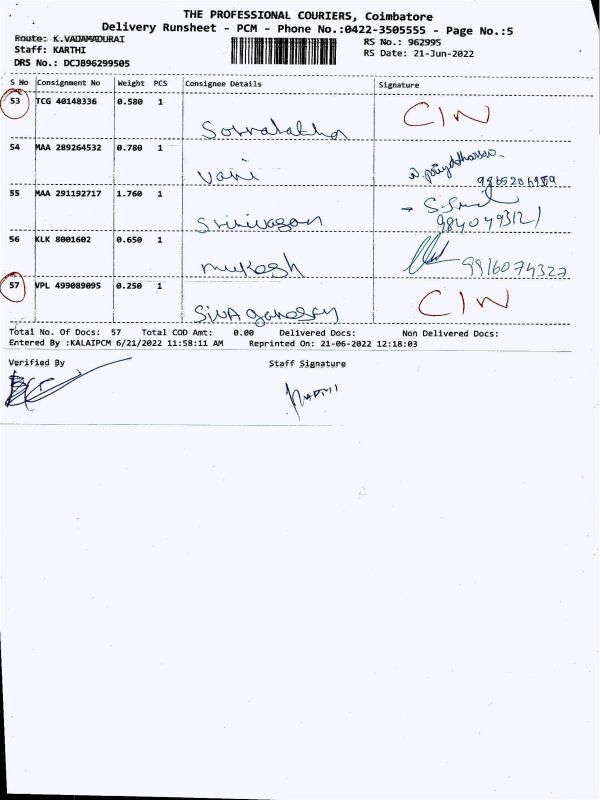 THE PROFESSIONAL COURIERS, Coimbatore
Delivery Runsheet - PCM - Phone No.:0422-3505555 - Page No.:5
Route: K.VADAMADURAI
RS No.: 962995
Staff: KARTHI
RS Date: 21-Jun-2022
DRS No.: DCJB96299505
S No Consignment No Weight PCS Consignee Details Signature
53 TCG 40148336 0.580 1 CIN
54 MAA 289264532 0.780 1
Vani
55 MAA 291192717 1.760 1
Srinivasan 9840493121
56 KLK 8001602 0.650 1
Mukesh 9916074327
57 VPL 499089095 0.250 1 CIN
Total No. Of Docs: 57 Total COD Amt: 0.00 Delivered Docs: Non Delivered Docs:
Entered By :KALAIPCM 6/21/2022 11:58:11 AM Reprinted On: 21-06-2022 12:18:03
Verified By Staff Signature